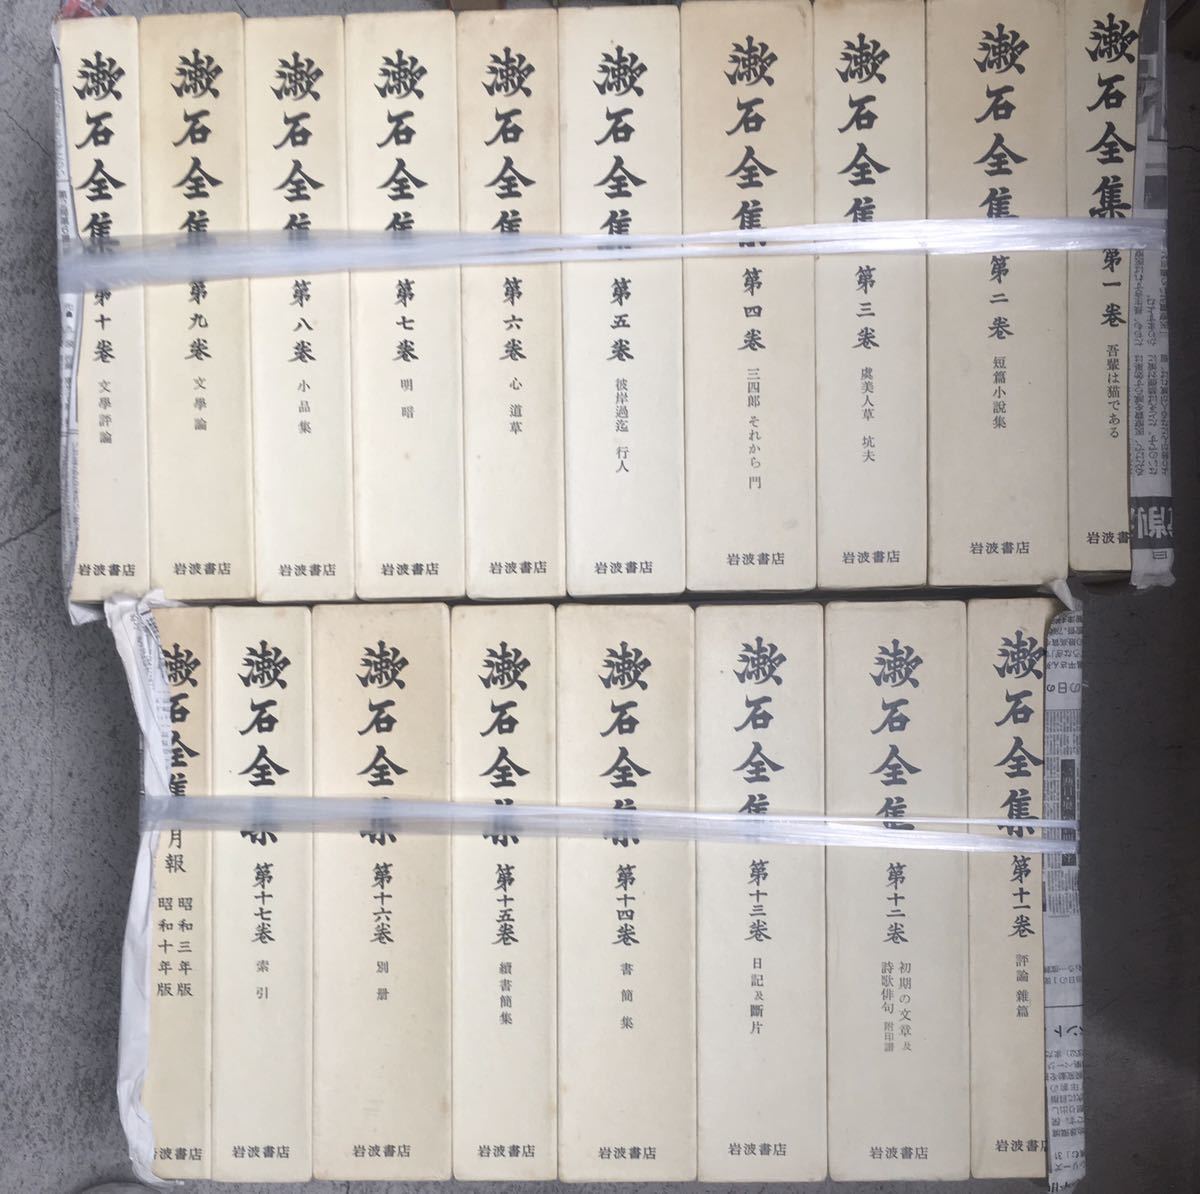 漱石全集 第一巻 吾輩は猫である 岩波書店
漱石全集 第二巻 短篇小説集 岩波書店
漱石全集 第三巻 虞美人草 坑夫 岩波書店
漱石全集 第四巻 三四郎 それから 門 岩波書店
漱石全集 第五巻 彼岸過迄 行人 岩波書店
漱石全集 第六巻 心 道草 岩波書店
漱石全集 第七巻 明暗 岩波書店
漱石全集 第八巻 小品集 岩波書店
漱石全集 第九巻 文學論 岩波書店
漱石全集 第十巻 文學評論 岩波書店
漱石全集 第十一巻 評論 雜篇 岩波書店
漱石全集 第十二巻 初期の文章及
詩歌俳句 附印譜 岩波書店
漱石全集 第十三巻 日記及斷片 岩波書店
漱石全集 第十四巻 書簡集 岩波書店
漱石全集 第十五巻 續書簡集 岩波書店
漱石全集 第十六巻 別册 岩波書店
漱石全集 第十七巻 索引 岩波書店
漱石全集 月報 昭和三年版
昭和十年版 岩波書店